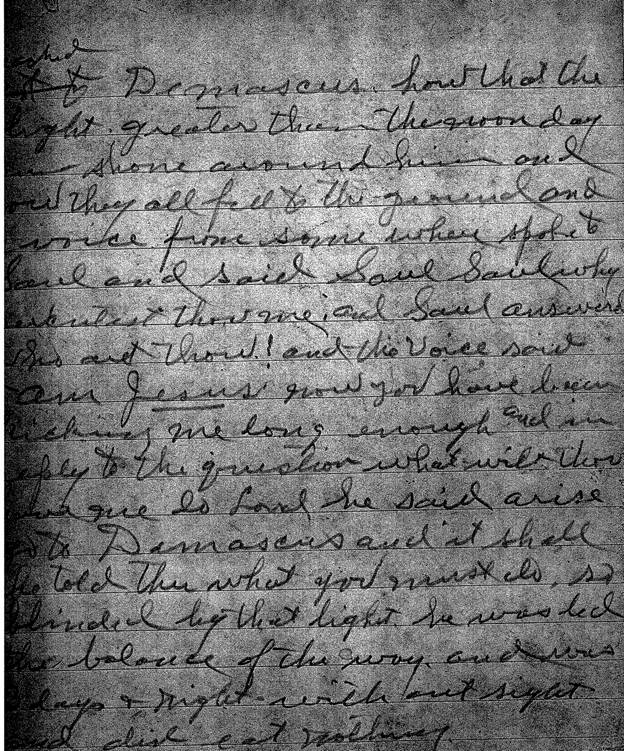 to Damascus. how that the
light greater than the noon day
shone around him and
how they all fell to the ground and
voice from some where spoke to
Saul and said Saul Saul why
thou me; and Saul answered
Who art Thou! and the Voice said
am Jesus now you have been
kicking me long enough and in
reply to the question what wilt thou
me do Lord he said arise
to Damascus and it shall
be told thee what you must do, so
blinded by that light he was led
the balance of the way and was
days & night with out sight
and did eat nothing.